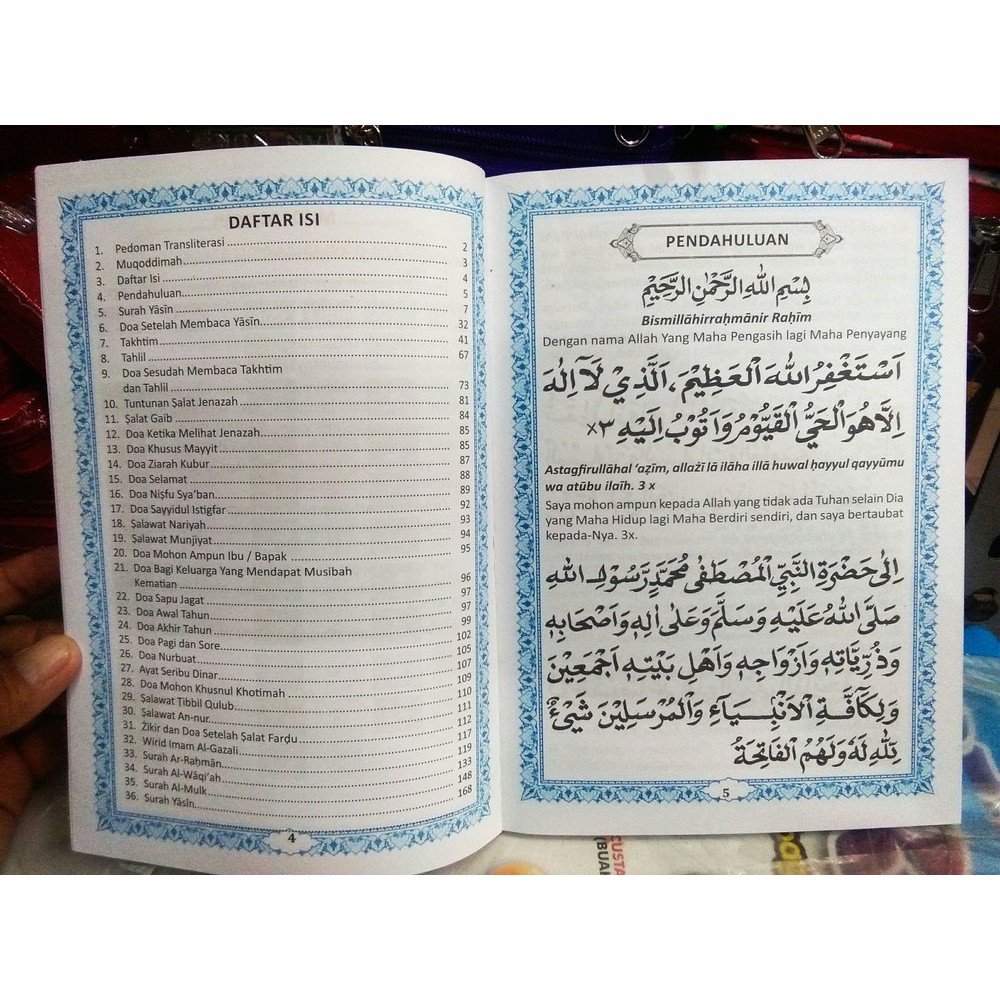 DAFTAR ISI
1. Pedoman Transliterasi 2
2. Muqoddimah 3
3. Daftar Isi 4
4. Pendahuluan 5
5. Surah Yāsīn 7
6. Doa Setelah Membaca Yāsīn 32
7. Takhtim 41
8. Tahlil 67
9. Doa Sesudah Membaca Takhtim
dan Tahlil 73
10. Tuntunan Ṣalat Jenazah 81
11. Ṣalat Gaib 84
12. Doa Ketika Melihat Jenazah 85
13. Doa Khusus Mayyit 85
14. Doa Ziarah Kubur 87
15. Doa Selamat 88
16. Doa Niṣfu Sya'ban 89
17. Doa Sayyidul Istigfar 92
18. Ṣalawat Nariyah 93
19. Ṣalawat Munjiyat 94
20. Doa Mohon Ampun Ibu / Bapak 95
21. Doa Bagi Keluarga Yang Mendapat Musibah
Kematian 96
22. Doa Sapu Jagat 97
23. Doa Awal Tahun 97
24. Doa Akhir Tahun 99
25. Doa Pagi dan Sore 102
26. Doa Nurbuat 105
27. Ayat Seribu Dinar 107
28. Doa Mohon Khusnul Khotimah 109
29. Ṣalawat Tibbil Qulub 110
30. Ṣalawat An-nur 111
31. Żikir dan Doa Setelah Ṣalat Farḍu 112
32. Wirid Imam Al-Gazali 117
33. Surah Ar-Raḥmān 119
34. Surah Al-Wāqi'ah 133
35. Surah Al-Mulk 148
36. Surah Yāsīn 168
4
PENDAHULUAN
بِسْمِ اللهِ الرَّحْمٰنِ الرَّحِيْمِ
Bismillāhirraḥmānir Raḥīm
Dengan nama Allah Yang Maha Pengasih lagi Maha Penyayang
اَسْتَغْفِرُ اللهَ الْعَظِيْمَ، اَلَّذِيْ لَآ اِلٰهَ
اِلَّا هُوَ الْحَيُّ الْقَيُّوْمُ وَاَتُوْبُ اِلَيْهِ ٣×
Astagfirullāhal 'aẓīm, allażī lā ilāha illā huwal ḥayyul qayyūmu
wa atūbu ilaīh. 3 x
Saya mohon ampun kepada Allah yang tidak ada Tuhan selain Dia
yang Maha Hidup lagi Maha Berdiri sendiri, dan saya bertaubat
kepada-Nya. 3x.
اِلٰى حَضْرَةِ النَّبِيِّ الْمُصْطَفٰى مُحَمَّدٍ رَّسُوْلِ اللهِ
صَلَّى اللهُ عَلَيْهِ وَسَلَّمَ وَعَلٰى اٰلِهٖ وَاَصْحَابِهٖ
وَذُرِّيَّاتِهٖ وَاَزْوَاجِهٖ وَاَهْلِ بَيْتِهٖ اَجْمَعِيْنَ
وَلِكَآفَّةِ الْاَنْۢبِيَآءِ وَالْمُرْسَلِيْنَ شَيْءٌ
لِلّٰهِ لَهٗ وَلَهُمُ الْفَاتِحَةُ
5